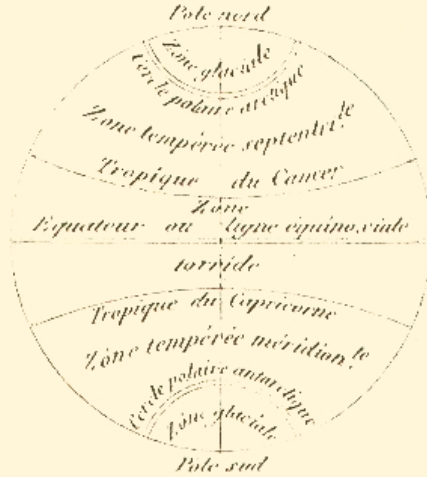 Pole nord
Zône glaciale
Cercle polaire arctique
Zone tempérée septentr.le
Tropique du Cancer
Zone
Equateur ou ligne équinoxiale
torride
Tropique du Capricorne
Zône tempérée méridion.le
Cercle polaire antarctique
Zône glaciale
Pole sud